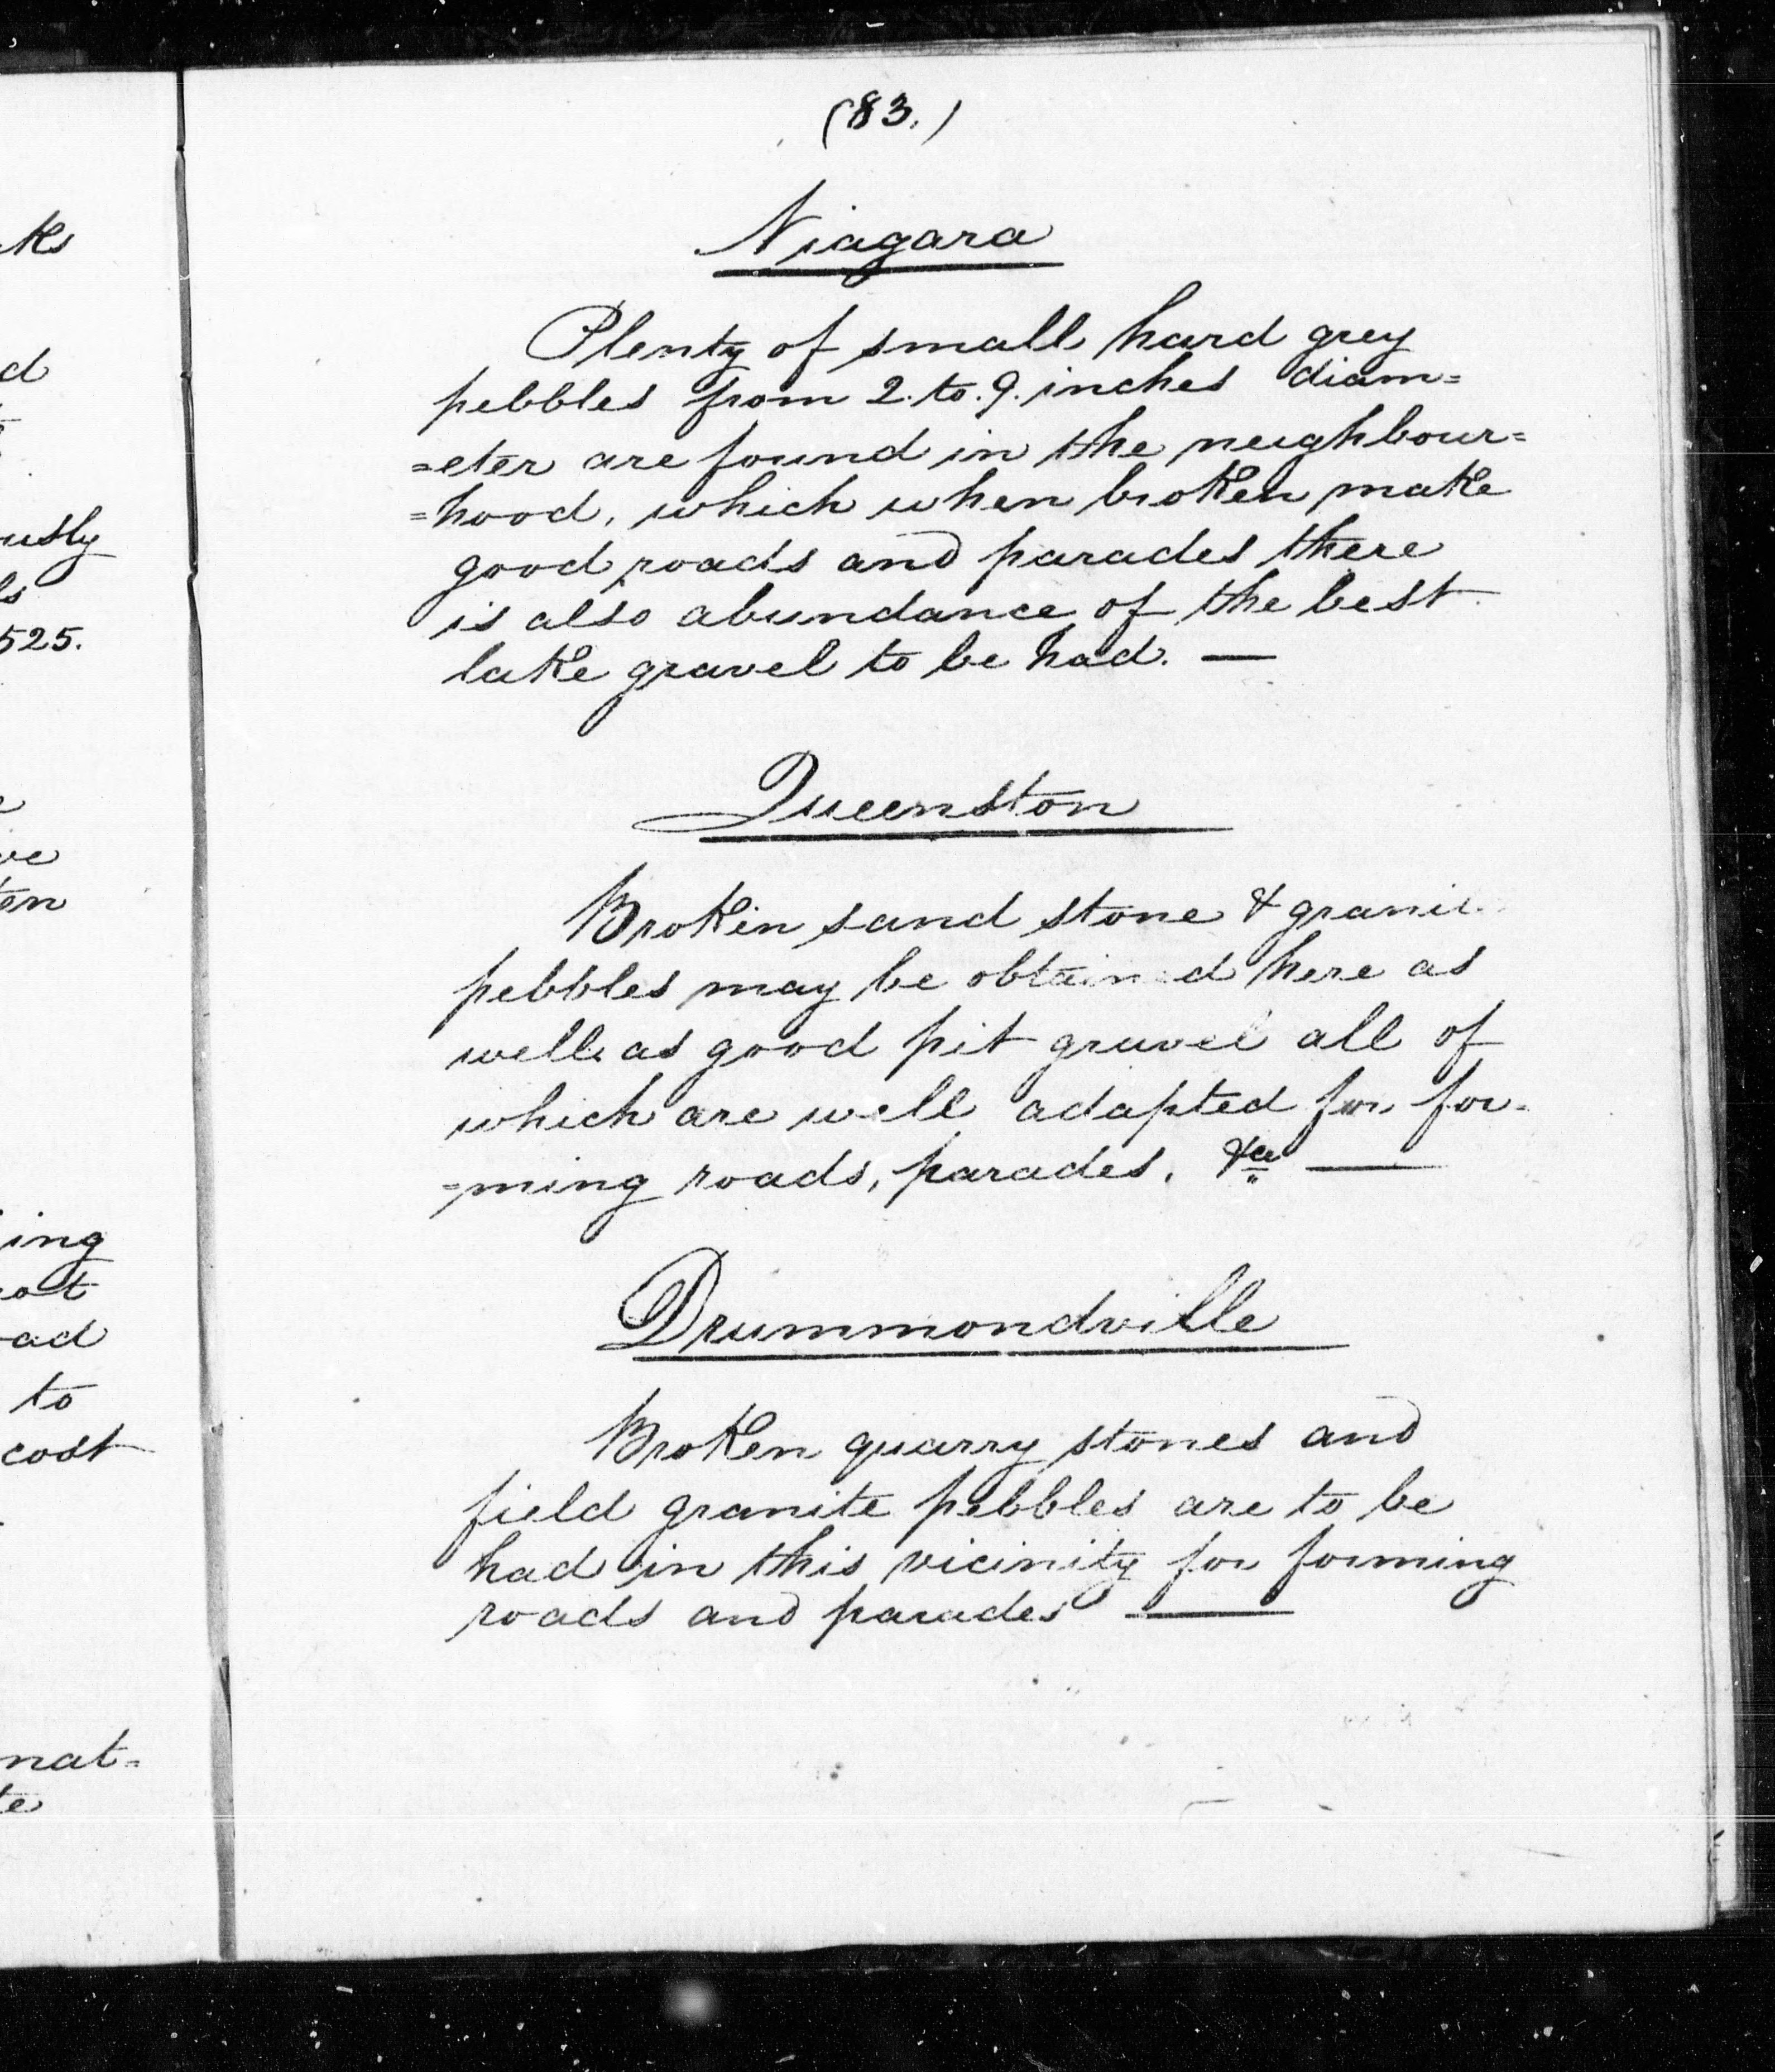 ks
d
usly
ls
525.
ve
en
ing
ot
ad
to
cost
nat=
te
(83.)
Niagara
Plenty of small hard grey
pebbles from 2. to. 9. inches diam=
=eter are found in the neighbour=
=hood, which when broken make
good roads and parades there
is also abundance of the best
lake gravel to be had. —
Queenston
Broken sand stone & granit
pebbles may be obtained here as
well as good pit gravel all of
which are well adapted for for=
=ming roads, parades, &c —
Drummondville
Broken quarry stones and
field granite pebbles are to be
had in this vicinity for forming
roads and parades —